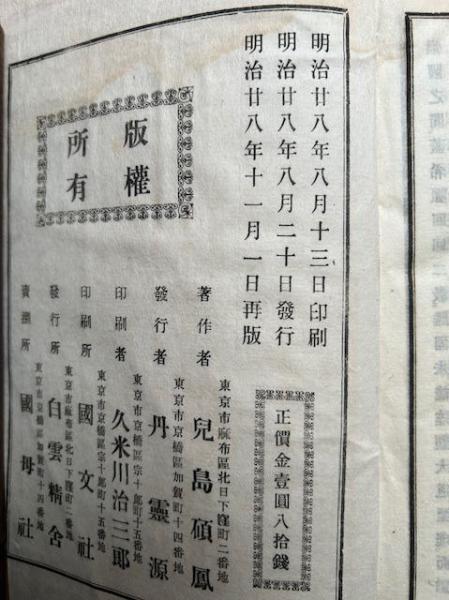 明治廿八年八月十三日印刷
明治廿八年八月二十日發行
明治廿八年十一月一日再版
版權
所有
正價金壹圓八拾錢
東京市麻布區北日下窪町二番地
著作者 兒島碩鳳
東京市京橋區加賀町十四番地
發行者 丹靈源
東京市京橋區宗十郎町十五番地
印刷者 久米川治三郎
東京市京橋區宗十郎町十五番地
印刷所 國文社
東京市麻布區北日下窪町二番地
發行所 白雲精舍
東京市京橋區加賀町十四番地
賣捌所 國母社